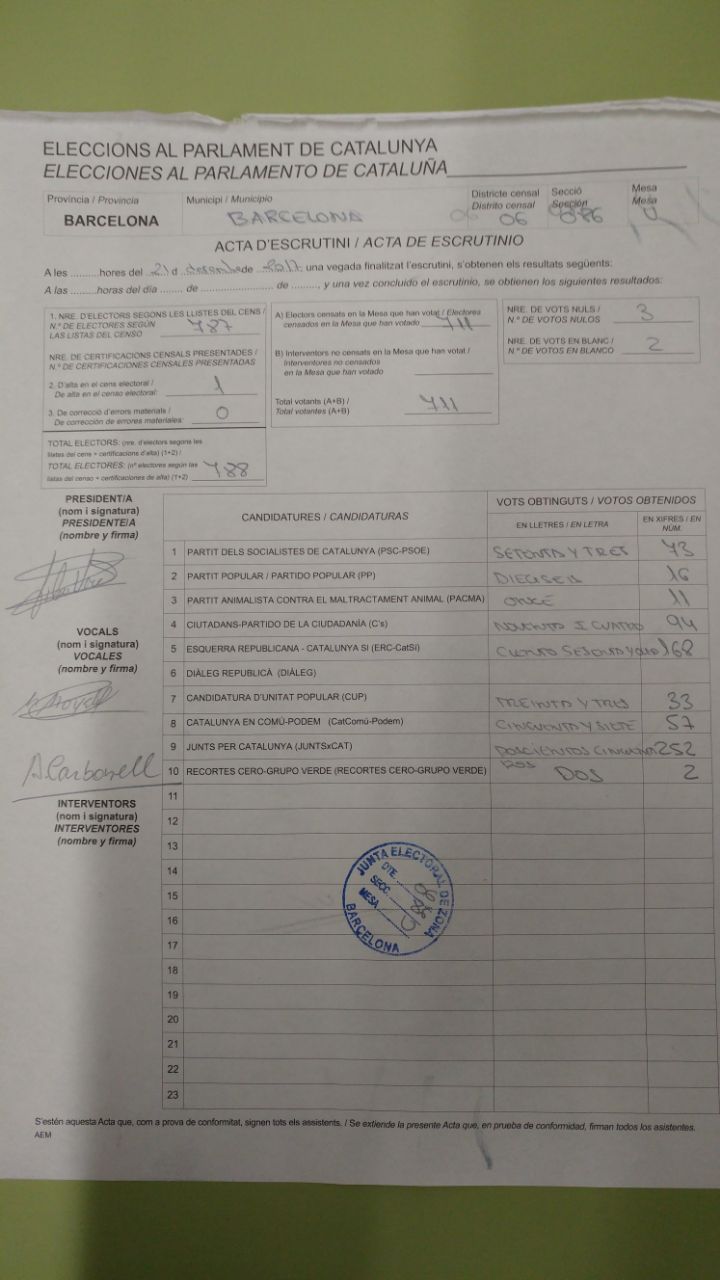 ELECCIONS AL PARLAMENT DE CATALUNYA
ELECCIONES AL PARLAMENTO DE CATALUÑA
Província / Provincia
BARCELONA
Municipi / Municipio
BARCELONA
Districte censal
Distrito censal
06
Secció
Sección
086
Mesa
Mesa
U
ACTA D'ESCRUTINI / ACTA DE ESCRUTINIO
A les ..........hores del 21 d desembre de 2017 una vegada finalitzat l'escrutini, s'obtenen els resultats següents:
A las ..........horas del día ........ de .......................... de ........., y una vez concluido el escrutinio, se obtienen los siguientes resultados:
1. NRE. D'ELECTORS SEGONS LES LLISTES DEL CENS /
N.º DE ELECTORES SEGÚN
LAS LISTAS DEL CENSO 787
NRE. DE CERTIFICACIONS CENSALS PRESENTADES /
N.º DE CERTIFICACIONES CENSALES PRESENTADAS
2. D'alta en el cens electoral /
De alta en el censo electoral: 1
3. De correcció d'errors materials /
De corrección de errores materiales: 0
TOTAL ELECTORS: (nre. d'electors segons les
llistes del cens + certificacions d'alta) (1+2) /
TOTAL ELECTORES: (nº electores según las
listas del censo + certificaciones de alta) (1+2) 788
A) Electors censats en la Mesa que han votat / Electores
censados en la Mesa que han votado 711
B) Interventors no censats en la Mesa que han votat /
Interventores no censados
en la Mesa que han votado
Total votants (A+B) /
Total votantes (A+B) 711
NRE. DE VOTS NULS /
N.º DE VOTOS NULOS 3
NRE. DE VOTS EN BLANC /
N.º DE VOTOS EN BLANCO 2
PRESIDENT/A
(nom i signatura)
PRESIDENTE/A
(nombre y firma)
VOCALS
(nom i signatura)
VOCALES
(nombre y firma)
A. Carbonell
INTERVENTORS
(nom i signatura)
INTERVENTORES
(nombre y firma)
CANDIDATURES / CANDIDATURAS
VOTS OBTINGUTS / VOTOS OBTENIDOS
EN LLETRES / EN LETRA
EN XIFRES / EN NÚM.
1 PARTIT DELS SOCIALISTES DE CATALUNYA (PSC-PSOE) SETENTA Y TRES 73
2 PARTIT POPULAR / PARTIDO POPULAR (PP) DIECISEIS 16
3 PARTIT ANIMALISTA CONTRA EL MALTRACTAMENT ANIMAL (PACMA) ONCE 11
4 CIUTADANS-PARTIDO DE LA CIUDADANÍA (C's) NOVENTA I CUATRO 94
5 ESQUERRA REPUBLICANA - CATALUNYA SI (ERC-CatSí) SESENTA Y 168
6 DIÀLEG REPUBLICÀ (DIÀLEG)
7 CANDIDATURA D'UNITAT POPULAR (CUP) TREINTA Y TRES 33
8 CATALUNYA EN COMÚ-PODEM (CatComú-Podem) CINCUENTA Y SIETE 57
9 JUNTS PER CATALUNYA (JUNTSxCAT) DOSCIENTOS 252
10 RECORTES CERO-GRUPO VERDE (RECORTES CERO-GRUPO VERDE) DOS 2
11
12
13
14
15
16
17
18
19
20
21
22
23
JUNTA ELECTORAL DE ZONA
DTE. 06
SECC. 086
MESA U
BARCELONA
S'estén aquesta Acta que, com a prova de conformitat, signen tots els assistents. / Se extiende la presente Acta que, en prueba de conformidad, firman todos los asistentes.
AEM